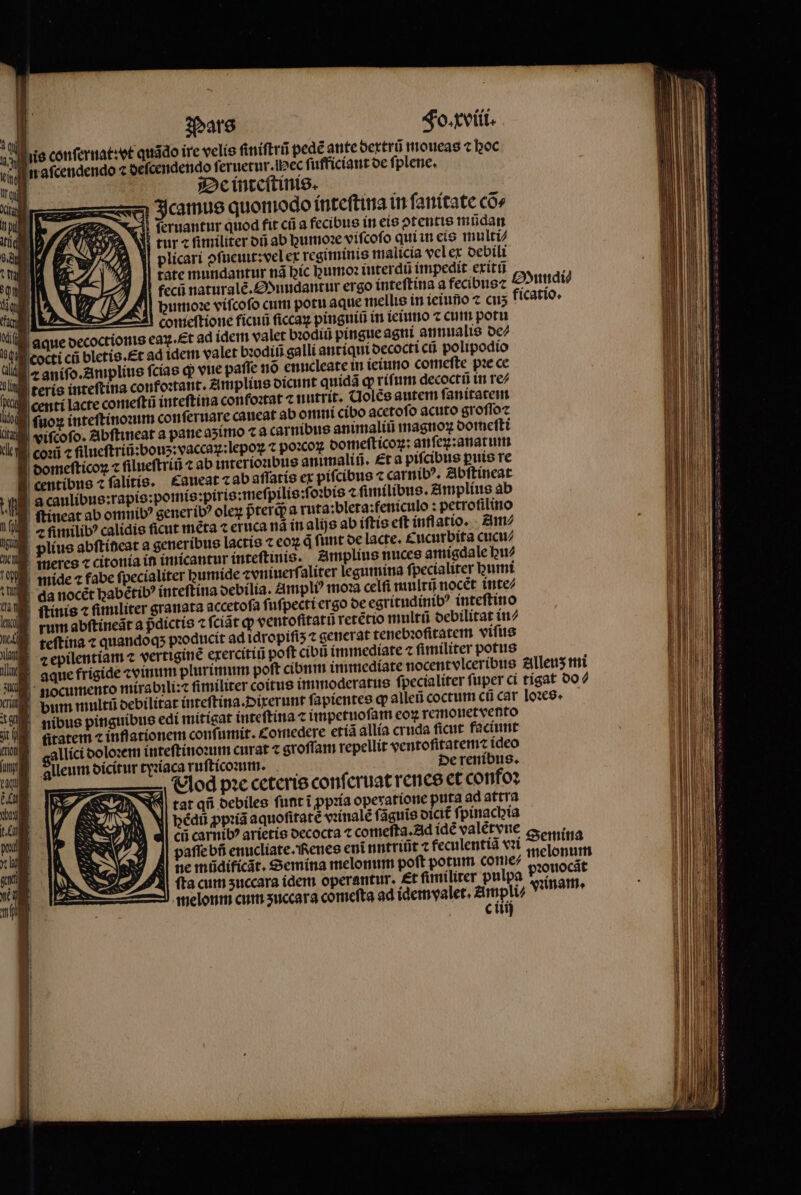 Pars Fo.xviii.
nis conseruat:vt quādo ire velis sinistrū pedē ante dextrū moueas ⁊ hoc
in ascendendo ⁊ descendendo seruetur. Hec sufficiant de splene.
De intestinis.
Icamus quomodo intestina in sanitate cō⸗
seruantur quod fit cū a fecibus in eis ꝯtentis mūdan
tur ⁊ similiter dū ab humore viscoso qui in eis multi⸗
plicari ꝯsueuit:vel ex regiminis malicia vel ex debili
tate mundantur nā hic humor interdū impedit exitū
fecū naturalē. Mundantur ergo intestina a fecibus ⁊
humore viscoso cum potu aque mellis in ieiuno ⁊ cuʒ
comestione ficuū siccaꝝ pinguiū in ieiuno ⁊ cum potu
Mundi⸗
ficatio.
aque decoctionis eaꝝ. Et ad idem valet brodiū pingue agni annualis de⸗
cocti cū bletis. Et ad idem valet brodiū galli antiqui decocti cū polipodio
⁊ aniso. Amplius scias ꝙ vue passe nō enucleate in ieiuno comeste pre ce
teris intestina confortant. Amplius dicunt quidā ꝙ risum decoctū in re⸗
centi lacte comestū intestina confortat ⁊ nutrit. Uolēs autem sanitatem
suoꝝ intestinorum conseruare caueat ab omni cibo acetoso acuto grosso ⁊
viscoso. Abstineat a pane azimo ⁊ a carnibus animaliū magnoꝝ domesti
corū ⁊ siluestriū:bouʒ:vaccaꝝ:lepoꝝ ⁊ porcoꝝ domesticoꝝ: anseꝝ:anatum
domesticoꝝ ⁊ siluestriū ⁊ ab interioribus animaliū. Et a piscibus ꝑuis re
centibus ⁊ salitis. Caueat ⁊ ab assatis ex piscibus ⁊ carnibꝰ. Abstineat
a caulibus:rapis:pomis:piris:mespilis:sorbis ⁊ similibus. Amplius ab
stineat ab omnibꝰ generibꝰ oleꝝ p̄terꝙ̄ a ruta:bleta:feniculo : petrosilino
⁊ similibꝰ calidis sicut mēta ⁊ eruca nā in alijs ab istis est inflatio. Am⸗
plius abstineat a generibus lactis ⁊ eoꝝ q̄ sunt de lacte. Cucurbita cucu⸗
meres ⁊ citonia in imicantur intestinis. Amplius nuces amigdale hu⸗
mide ⁊ fabe specialiter humide ⁊ vniuersaliter legumina specialiter humi
da nocēt habētibꝰ intestina debilia. Ampliꝰ mora celsi multū nocēt inte⸗
stinis ⁊ similiter granata accetosa suspecti ergo de egritudinibꝰ intestino
rum abstineāt a p̄dictis ⁊ sciāt ꝙ ventositatū retētio multū debilitat in⸗
testina ⁊ quandoqʒ producit ad idropisiʒ ⁊ generat tenebrositatem visus
⁊ epilentiam ⁊ vertiginē exercitiū post cibū immediate ⁊ similiter potus
aque frigide ⁊ vinum plurimum post cibum immediate nocent vlceribus
nocumento mirabili:⁊ similiter coitus immoderatus specialiter super ci
bum multū debilitat intestina. Dixerunt sapientes ꝙ alleū coctum cū car
nibus pinguibus edi mitigat intestina ⁊ impetuosam eoꝝ remouet vento
Alleuʒ mi
tigat do⸗
lores.
sitatem ⁊ inflationem consumit. Comedere etiā allia cruda sicut faciunt
gallici dolorem intestinorum curat ⁊ grossam repellit ventositatem ⁊ ideo
alleum dicitur tyriaca rusticorum. De renibus.
Uod pre ceteris conseruat renes et confor
tat qn̄ debiles sunt ī ꝓpria operatione puta ad attra
hēdū ꝓpriā aquositatē vrinalē sāguis dicit̄ spinachia
cū carnibꝰ arietis decocta ⁊ comesta. Ad idē valēt vue
passe bn̄ enucliate. Renes enī nutriūt ⁊ feculentiā vri
ne mūdificāt. Semina melonum post potum come⸗
sta cum zuccara idem operantur. Et similiter pulpa
melonum cum zuccara comesta ad idem valet. Ampli⸗
Semina
melonum
prouocāt
vrinam.
c iiij